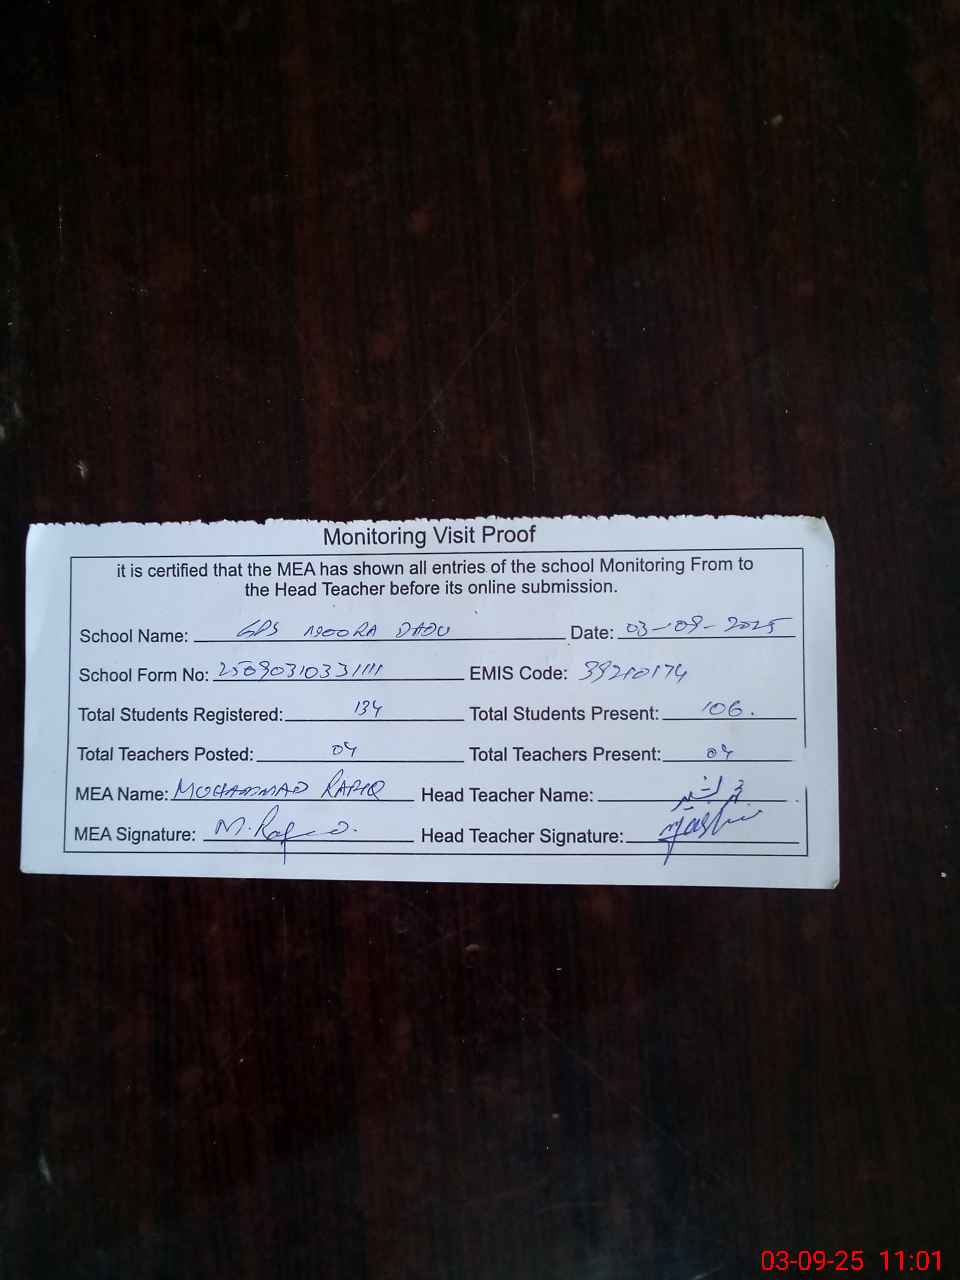 Monitoring Visit Proof
it is certified that the MEA has shown all entries of the school Monitoring From to
the Head Teacher before its online submission.
School Name: GPS NOORA DADU Date: 03-09-2025
School Form No: 25090310331111 EMIS Code: 39210174
Total Students Registered: 134 Total Students Present: 106.
Total Teachers Posted: 04 Total Teachers Present: 04
MEA Name: MOHAMMAD RAFIQ Head Teacher Name: محمد بشیر
MEA Signature: M. Rafiq Head Teacher Signature:
03-09-25 11:01